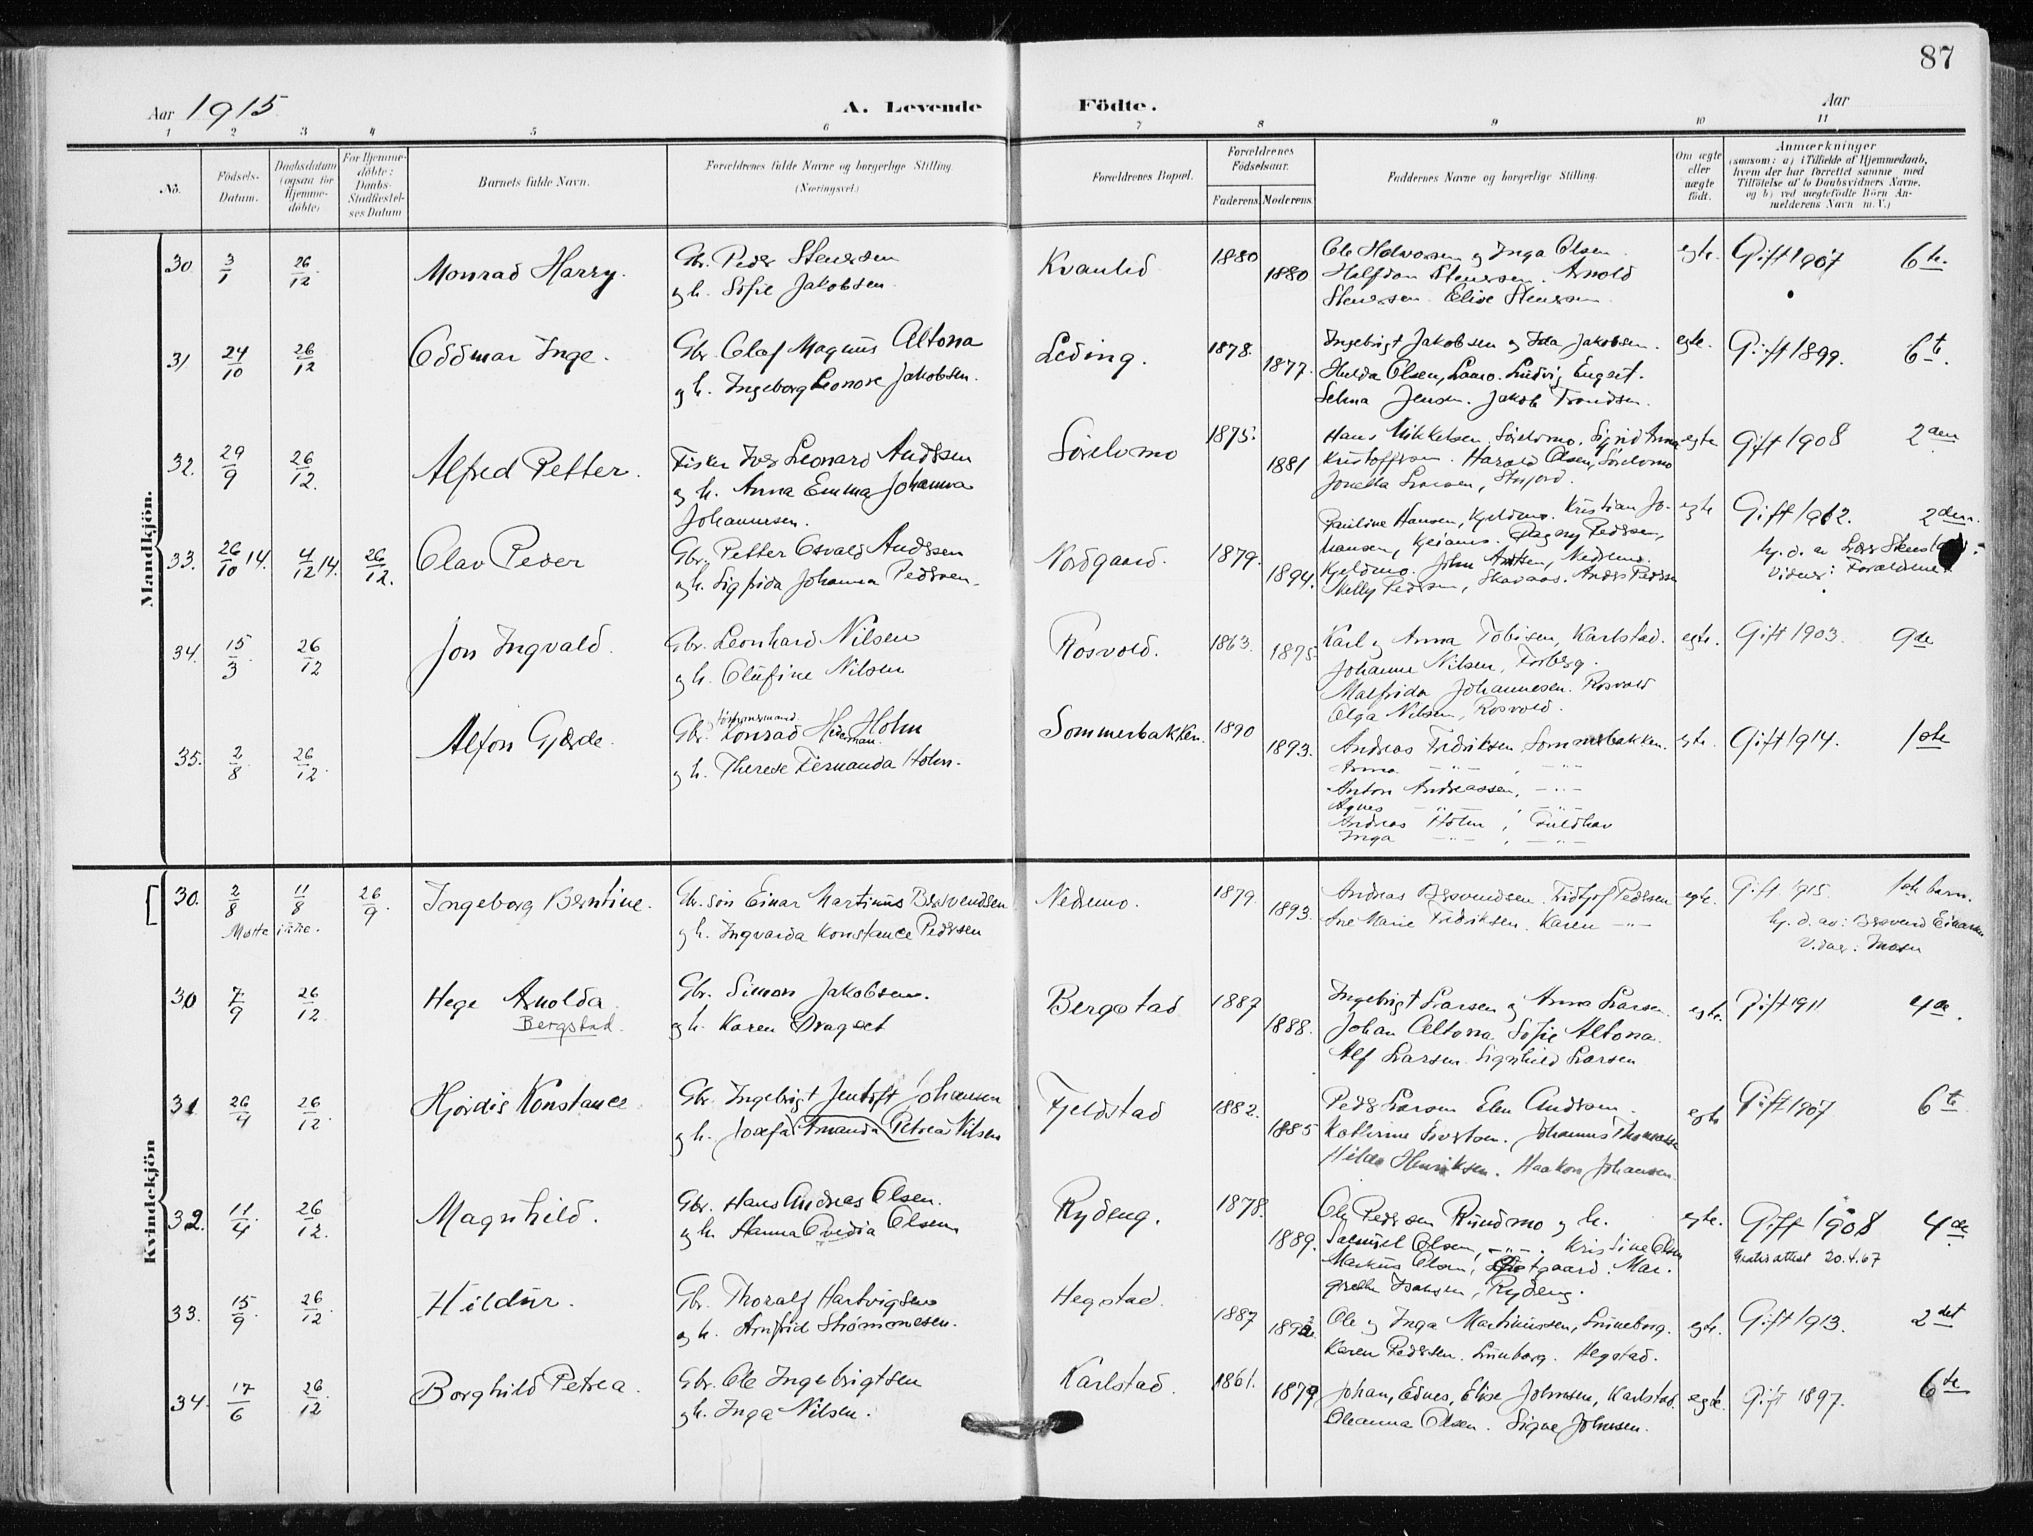 87
Aar 1915. A. Levende Födte. Aar
1 2 3 4 5 6 7 8 9 10 11
No.
Födsels-
Datum.
Daabsdatum
(ogsaa for
Hjemme-
döbte)
For Hjemme-
döbte:
Daabs-
Stadfæstel-
ses Datum
Barnets fulde Navn.
Forældrenes fulde Navne og borgerlige Stilling.
(Næringsvei.)
Forældrenes Bopæl.
Forældrenes
Födselsaar.
Faderens. Moderens.
Faddernes Navne og borgerlige Stilling.
Om ægte
eller
uægte
födt.
Anmærkninger
(saasom: a) i Tilfælde af Hjemmedaab,
hvem der har forrettet samme med
Tilföielse af to Daabsvidners Navne,
og b) ved uægtefödte Börn An-
melderens Navn m. V.)
Mandkjön.
30. 3/1 26/12. Monrad Harry. Gbr. Peder Stenersen
og h. Sofie Jakobsen.
Kvanlid 1880 1880
Ole Halvorsen og Inga Olsen.
Halfdan Stenersen. Arnold
Stenersen. Elise Stenersen.
egte. Gift 1907 6te.
31 24/10 26/12 Oddmar Inge. Gbr. Olaf Magnus Altona
og h. Ingeborg Leonore Jakobsen.
Leding. 1878. 1877.
Ingebrigt Jakobsen og Ida Jakobsen.
Hulda Olsen, Ludvig
Selma Jensen. Jakob Trondsen.
egte. Gift 1899. 6te.
32. 29/9 26/12. Alfred Petter. Fisker Iver Leonard Andersen
og h. Anna Emma Johanna
Johannesen.
Sørelvmo 1875. 1881
Hans Mikkelsen, Sørelvmo. Sigrid Anna
Kristoffersen. Harald Olsen, Sørelvmo
Jonetta Larsen,
egte Gift 1908 2den
33. 26/10 14. 4/12 14. 26/12. Olav Peder Gbr. Petter Osvald Andersen
og h. Sigfrida Johanna Pedersen.
Nordgaard. 1879. 1894.
Pauline Hansen, Kjeldmo. Kristian Jo-
hansen, Dagny Pedersen,
Kjeldmo. John Nedremo.
Nelly Pedersen, Skavaas. Anders Pedersen
egte Gift 1912. 2den.
hj. d. av Lærer
Vidner: Forældrene
34. 15/3. 26/12 Jon Ingvald. Gbr. Leonhard Nilsen
og h. Olufine Nilsen
Rosvold. 1863. 1875.
Karl og Anna Tobisen, Karlstad.
Johanne Nilsen, Forberg.
Malfrida Johannesen. Rosvold
Olga Nilsen, Rosvold.
egte. Gift 1903. 9de
35. 2/8 26/12. Alfon Gjerde. Gbr. Konrad Holm
og h. Therese Fernanda Holm.
Sommerbakken. 1890 1893.
Andreas Fredriksen Sommerbakken.
Anna —"— , —"—
Anton Andreassen, —"—
Agnes —"— , —"—
Andreas Holm , Guldhav
Inga —"— , —"—
egte. Gift 1914. 1ste
Kvindekjön
30. 2/8 11/8 26/9. Ingeborg Berntine. Gbr.søn Einar Martinus Bersvendsen
og h. Ingvarda Konstance Pedersen
Møtte ikke.
Nedremo. 1879. 1893.
Andreas Bersvendsen. Fridtjof Pedersen
Ine Marie Fredriksen. Karen —"—
egte. Gift 1915. 1ste barn.
hj. d. av: Bersvend Einarsen
30 7/9 26/12 Hege Arnolda
Bergstad.
Gbr. Simon Jakobsen.
og h. Karen Dragset
Bergstad 1887 1888.
Ingebrigt Larsen og Anna Larsen.
Johan Altona Sofie Altona.
Alf Larsen. Signhild Larsen
egte. Gift 1911 4de.
31 26/4 26/12. Hjördis Konstance Gbr. Ingebrigt Jentoft Johansen
og h. Josefa Amanda Petrea Nilsen
Fjeldstad 1882. 1885
Peder Larsen Elen Andersen.
Katrine Sivertsen. Johannes Thomassen
Hilda Henriksen. Haakon Johansen.
egte Gift 1907 6te
32. 11/4 26/12. Magnhild. Gbr. Hans Andreas Olsen.
og h. Hanna Ovedia Olsen
Rydeng. 1878. 1889.
Ole Pedersen Rundmo og h.
Samuel Olsen, —"—. Kristine Olsen
Markus Olsen, Mar-
grethe Isaksen, Rydeng.
egte. Gift 1908 4de
Gratis attest 20.4.67
33. 15/9 26/12. Hildur. Gbr. Thoralf Hartvigsen
og h. Arnfrid Strømmesen.
Hegstad. 1887 1892.
Ole og Inga Martinussen, Luneborg.
Karen Pedersen. Lunborg. Hegstad.
egte. Gift 1913. 2det
34. 17/6 26/12 Borghild Petrea. Gbr. Ole Ingebrigtsen
og h. Inga Nilsen.
Karlstad. 1861. 1879
Johan, Ednes, Elise Johnsen, Karlstad.
Oleanna Olsen. Signe Johnsen.
egte. Gift 1897. 6te